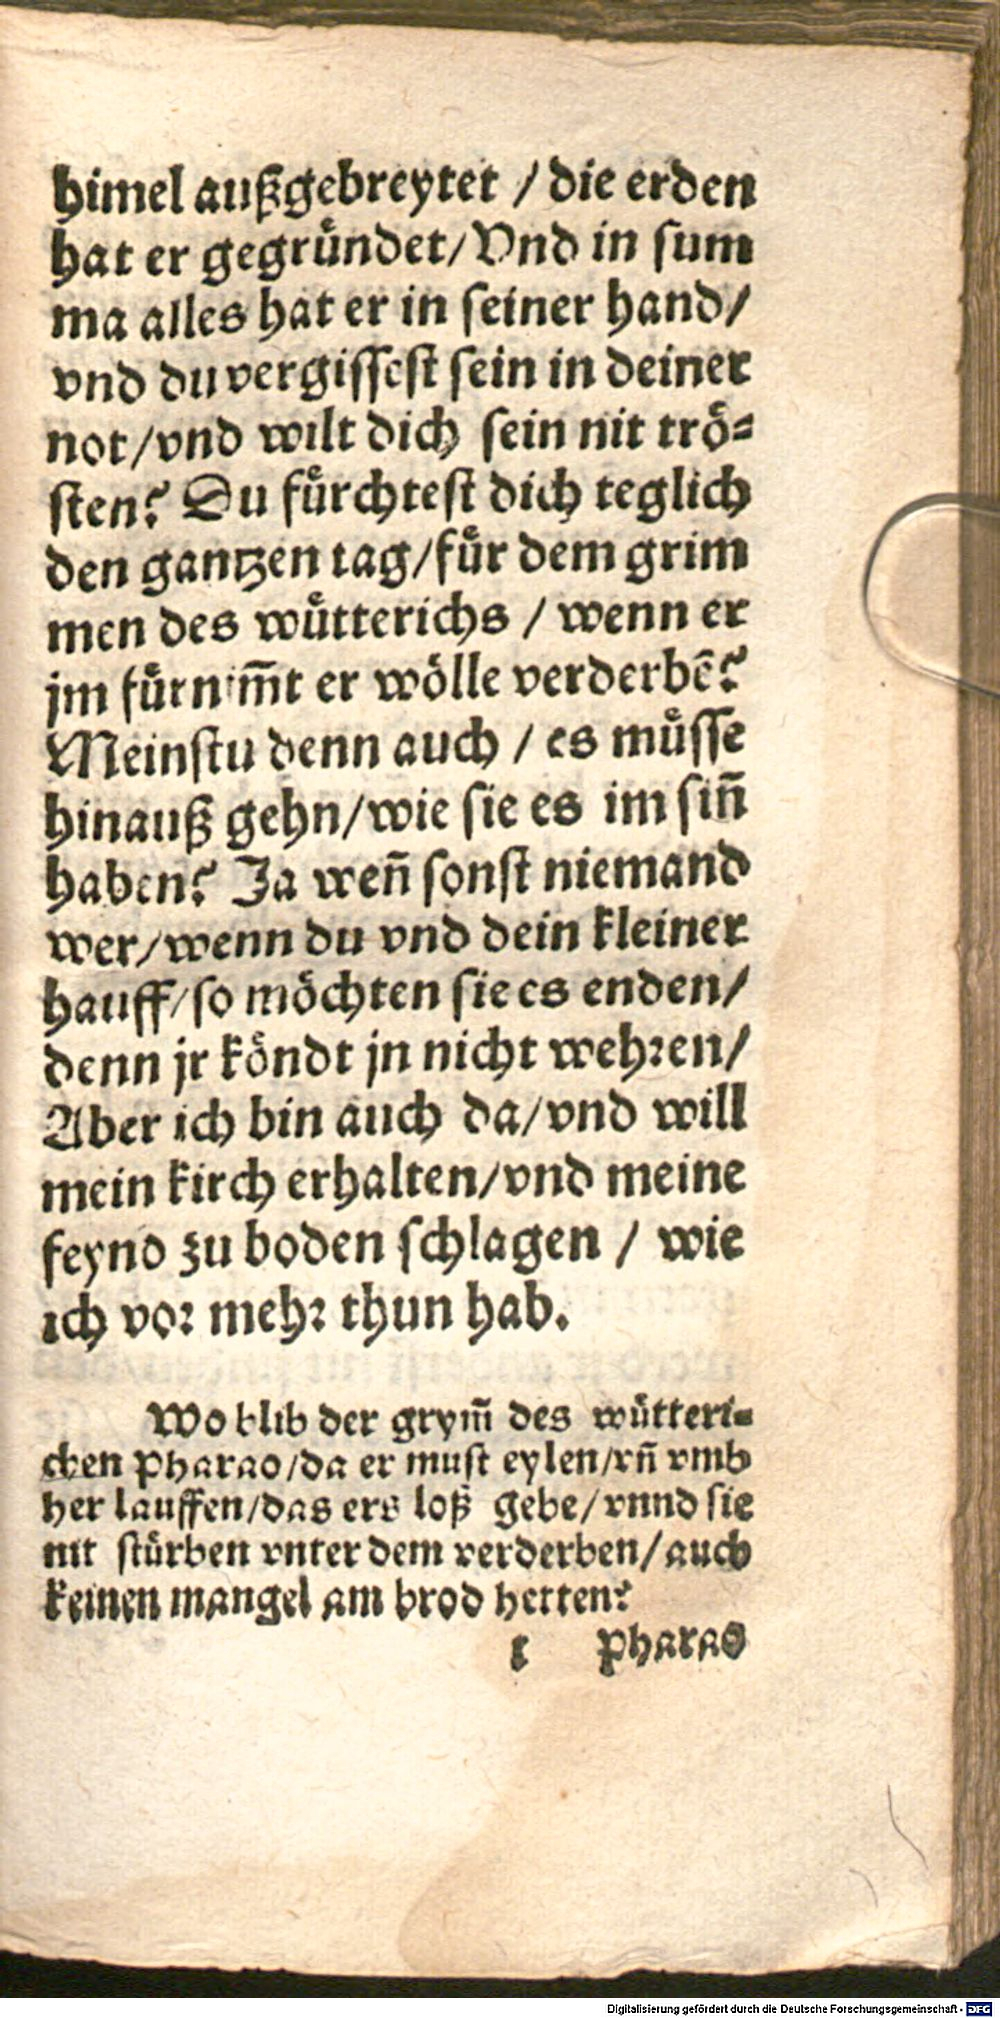 himel außgebreytet / die erden
hat er gegründet/ Vnd in sum
ma alles hat er in seiner hand/
vnd du vergissest sein in deiner
not/vnd wilt dich sein nit trö-
sten? Du fürchtest dich teglich
den gantzen tag/für dem grim
men des wütterichs / wenn er
jm fürnim̄t er wölle verderbē?
Meinstu denn auch / es müsse
hinauß gehn/wie sie es im sin̄
haben? Ja wen̄ sonst niemand
wer/wenn du vnd dein kleiner
hauff/so möchten sie es enden/
denn jr köndt jn nicht wehren/
Aber ich bin auch da/vnd will
mein kirch erhalten/vnd meine
feynd zu boden schlagen / wie
ich vor mehr thun hab.
Wo blib der grym̄ des wütteri-
chen Pharao/da er must eylen/vn̄ vmb
her lauffen/das ers loß gebe/vnnd sie
nit stürben vnter dem verderben/auch
keinen mangel am brod hetten?
r Pharao
Digitalisierung gefördert durch die Deutsche Forschungsgemeinschaft - DFG